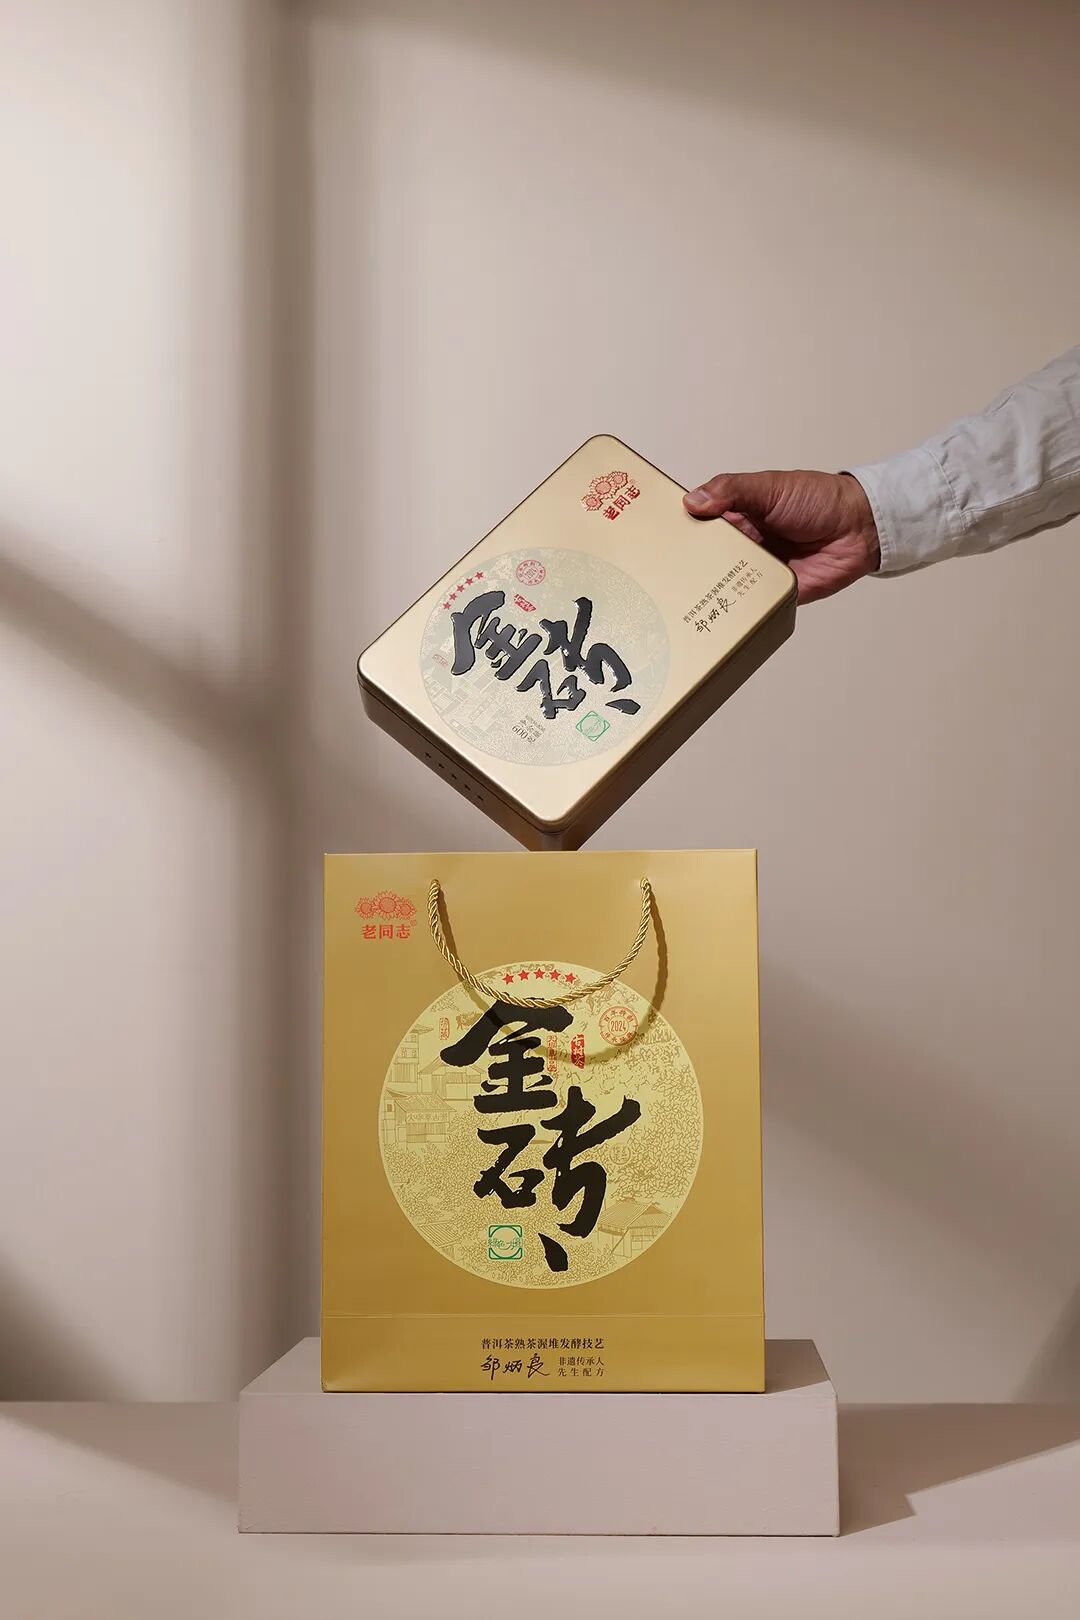 老同志
金砖
2024
600克
普洱茶熟茶渥堆发酵技艺
邹炳良
非遗传承人
先生配方
老同志
金砖
2024
普洱茶熟茶渥堆发酵技艺
邹炳良
非遗传承人
先生配方